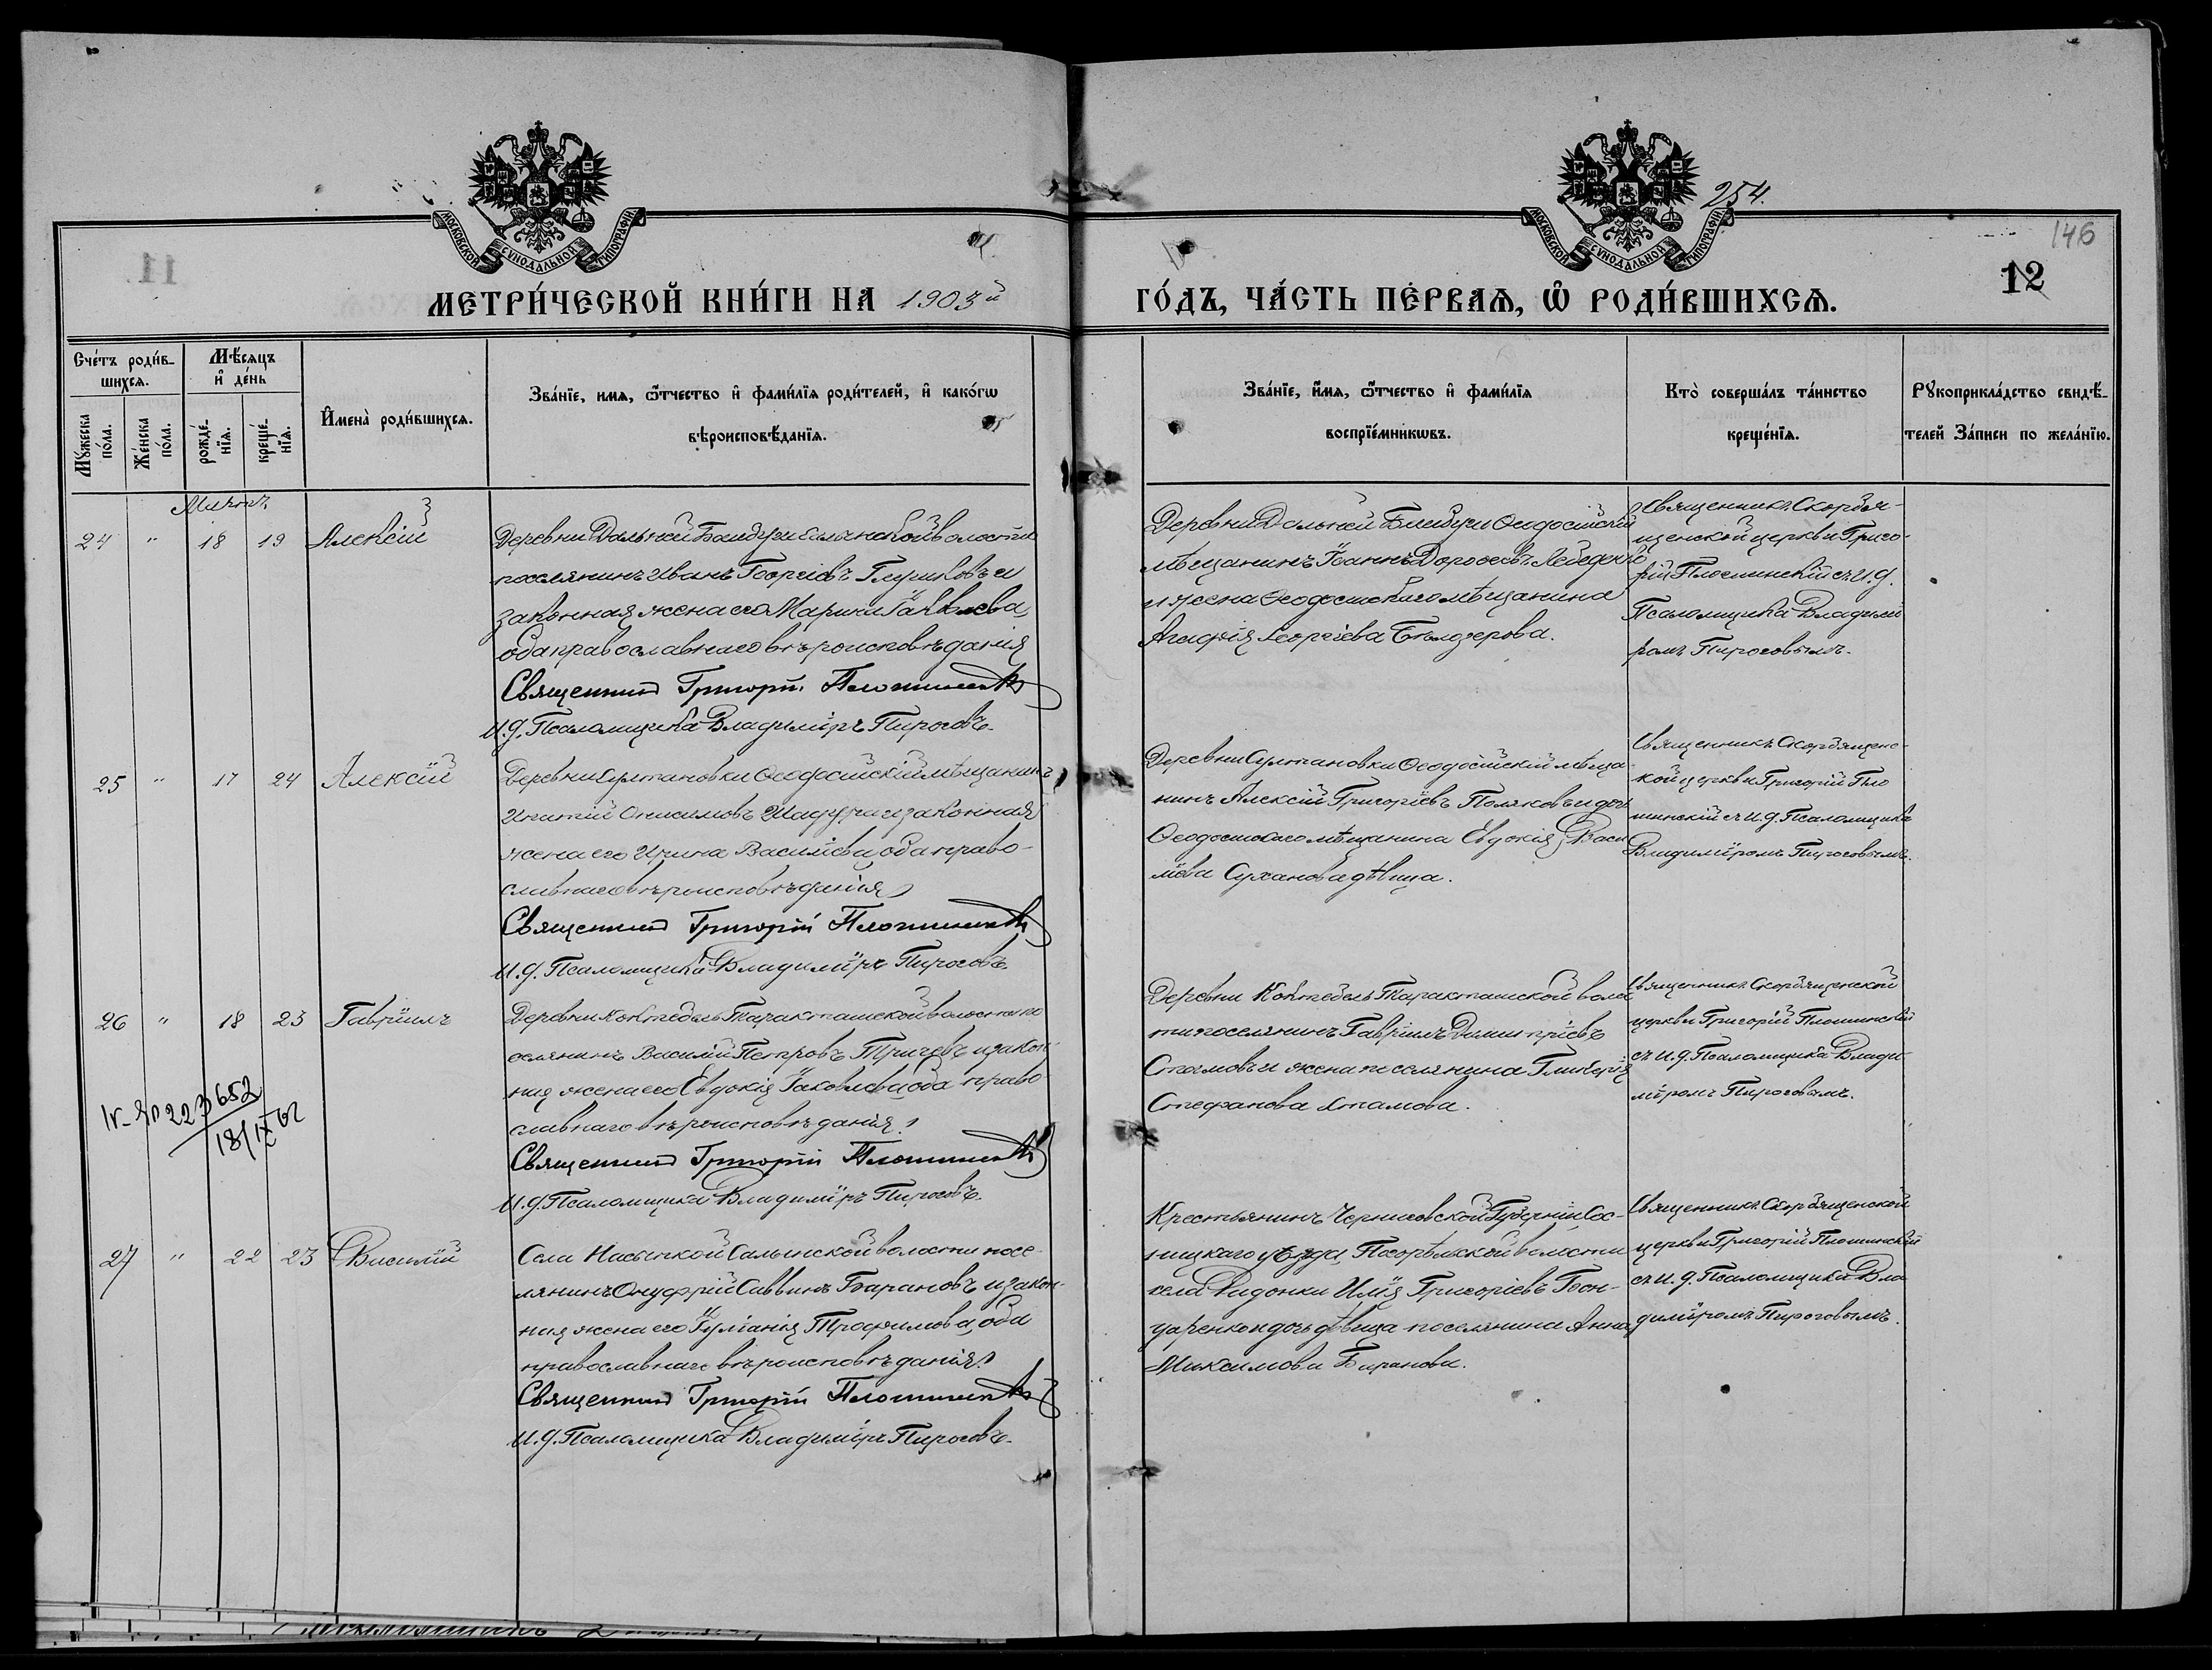 254.
146
12
МОСКОВСКОЙ СѴНОДАЛЬНОЙ ТИПОГРАФІИ
МОСКОВСКОЙ СѴНОДАЛЬНОЙ ТИПОГРАФІИ
МЕТРИ́ЧЕСКОЙ КНИ́ГИ НА 1903й ГО́ДЪ, ЧА́СТЬ ПЕ́РВАѦ, Ѿ РОДИ́ВШИХСѦ.
Сче́тъ роди́в-
шихсѧ.
Мѣ́сѧцъ
и҆ де́нь
Мꙋжеска
по́ла.
Же́нска
по́ла.
рожде́-
нїѧ.
креще́-
нїѧ.
И҆мена̀ роди́вшихсѧ.
Зва́нїе, имѧ, ѻ҆́тчество и҆ фами́лїѧ роди́телей, и҆ како́гѡ
вѣроисповѣ́данїѧ.
Зва́нїе, и҆́мѧ, ѻ҆́тчество и҆ фами́лїѧ
воспрїе́мникѡвъ.
Кто̀ соверша́лъ та́инство
креще́нїѧ.
Рꙋкоприкла́дство свидѣ́-
телей За́писи по жела́нїю.
24 " 18 19 Алексій
Деревни Дальней Байбуги Салынской волости
поселянинъ Иванъ Георгіевъ и
законная жена его Марина Іаковлева,
оба православнаго вѣроисповѣданія
Священникъ Григорій Плотинскій
И.д. Псаломщика Владиміръ Пироговъ.
Деревни Дальней Байбуги Ѳеодосійскій
мѣщанинъ Іоаннъ Дороѳеевъ
и жена Ѳеодосійскаго мѣщанина
Агафія Георгіева Бѣлозерова.
Священникъ Скорбя-
щенской церкви Григо-
рій Плотинскій съ И.д.
Псаломщика Владимі-
ромъ Пироговымъ.
25 " 17 24 Алексій
Деревни Султановки Ѳеодосійскій мѣщанинъ
Игнатій Онисимовъ и законная
жена его Ирина Василіева, оба право-
славнаго вѣроисповѣданія
Священникъ Григорій Плотинскій
И.д. Псаломщика Владиміръ Пироговъ
Деревни Султановки Ѳеодосійскій мѣща-
нинъ Алексій Григоріевъ Поляковъ и дочь
Ѳеодосійскаго мѣщанина Евдокія Васи-
ліева Суханова дѣвица.
Священникъ Скорбященс-
кой церкви Григорій Пло-
тинскій съ И.д. Псаломщика
Владиміромъ Пироговымъ.
26 " 18 23 Гавріилъ
Деревни Коктебель Таракташской волости по-
селянинъ Василій Петровъ и закон-
ная жена его Евдокія Іаковлева, оба право-
славнаго вѣроисповѣданія.
Священникъ Григорій Плотинскій
И.д. Псаломщика Владиміръ Пироговъ.
Деревни Коктебель Таракташской волос-
ти поселянинъ Гавріилъ Димитріевъ
Стамовъ и жена поселянина Гликерія
Стефанова Стамова.
Священникъ Скорбященской
церкви Григорій Плотинскій
съ И.д. Псаломщика Влади-
міромъ Пироговымъ.
223652
18/IX 62
27 " 22 23 Василій
Села Насыпкой Салынской волости посе-
лянинъ Онуфрій Саввинъ Барановъ и закон-
ная жена его Іуліанія Трофимова, оба
православнаго вѣроисповѣданія
Священникъ Григорій Плотинскій
И.д. Псаломщика Владиміръ Пироговъ.
Крестьянинъ Черниговской Губерніи, Сос-
ницкаго уѣзда, Погорѣльской волости
села Илія Григоріевъ Гон-
чаренко и дочь дѣвица поселянина Анна
Максимова Баранова.
Священникъ Скорбященской
церкви Григорій Плотинскій
съ И.д. Псаломщика Вла-
диміромъ Пироговымъ.